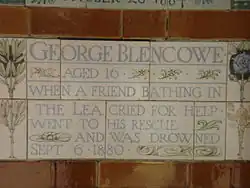 GEORGE BLENCOWE
AGED 16
WHEN A FRIEND BATHING IN
THE LEA CRIED FOR HELP
WENT TO HIS RESCUE
AND WAS DROWNED
SEPT 6 1880